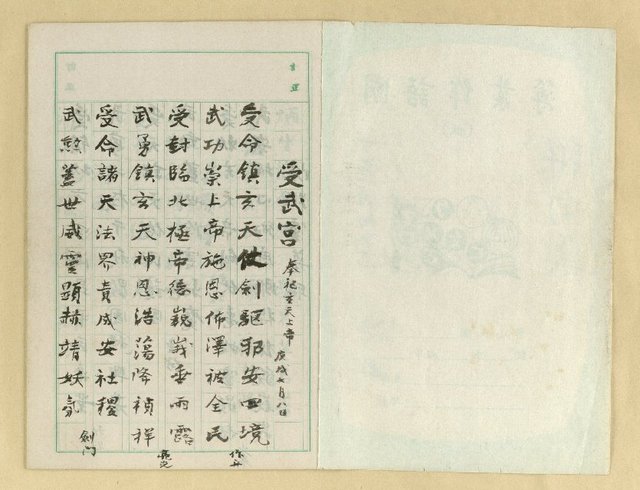 受武宮 奉祀玄天上帝 庚戌七月八日
受令鎮玄天仗劍驅邪安四境
武功崇上帝施恩佈澤被全民
受封臨北極帝德巍峩垂雨露
武勇鎮玄天神恩浩蕩降禎祥
受令諸天法界責成安社稷
武煞蓋世威靈顯赫靖妖氛
劍門